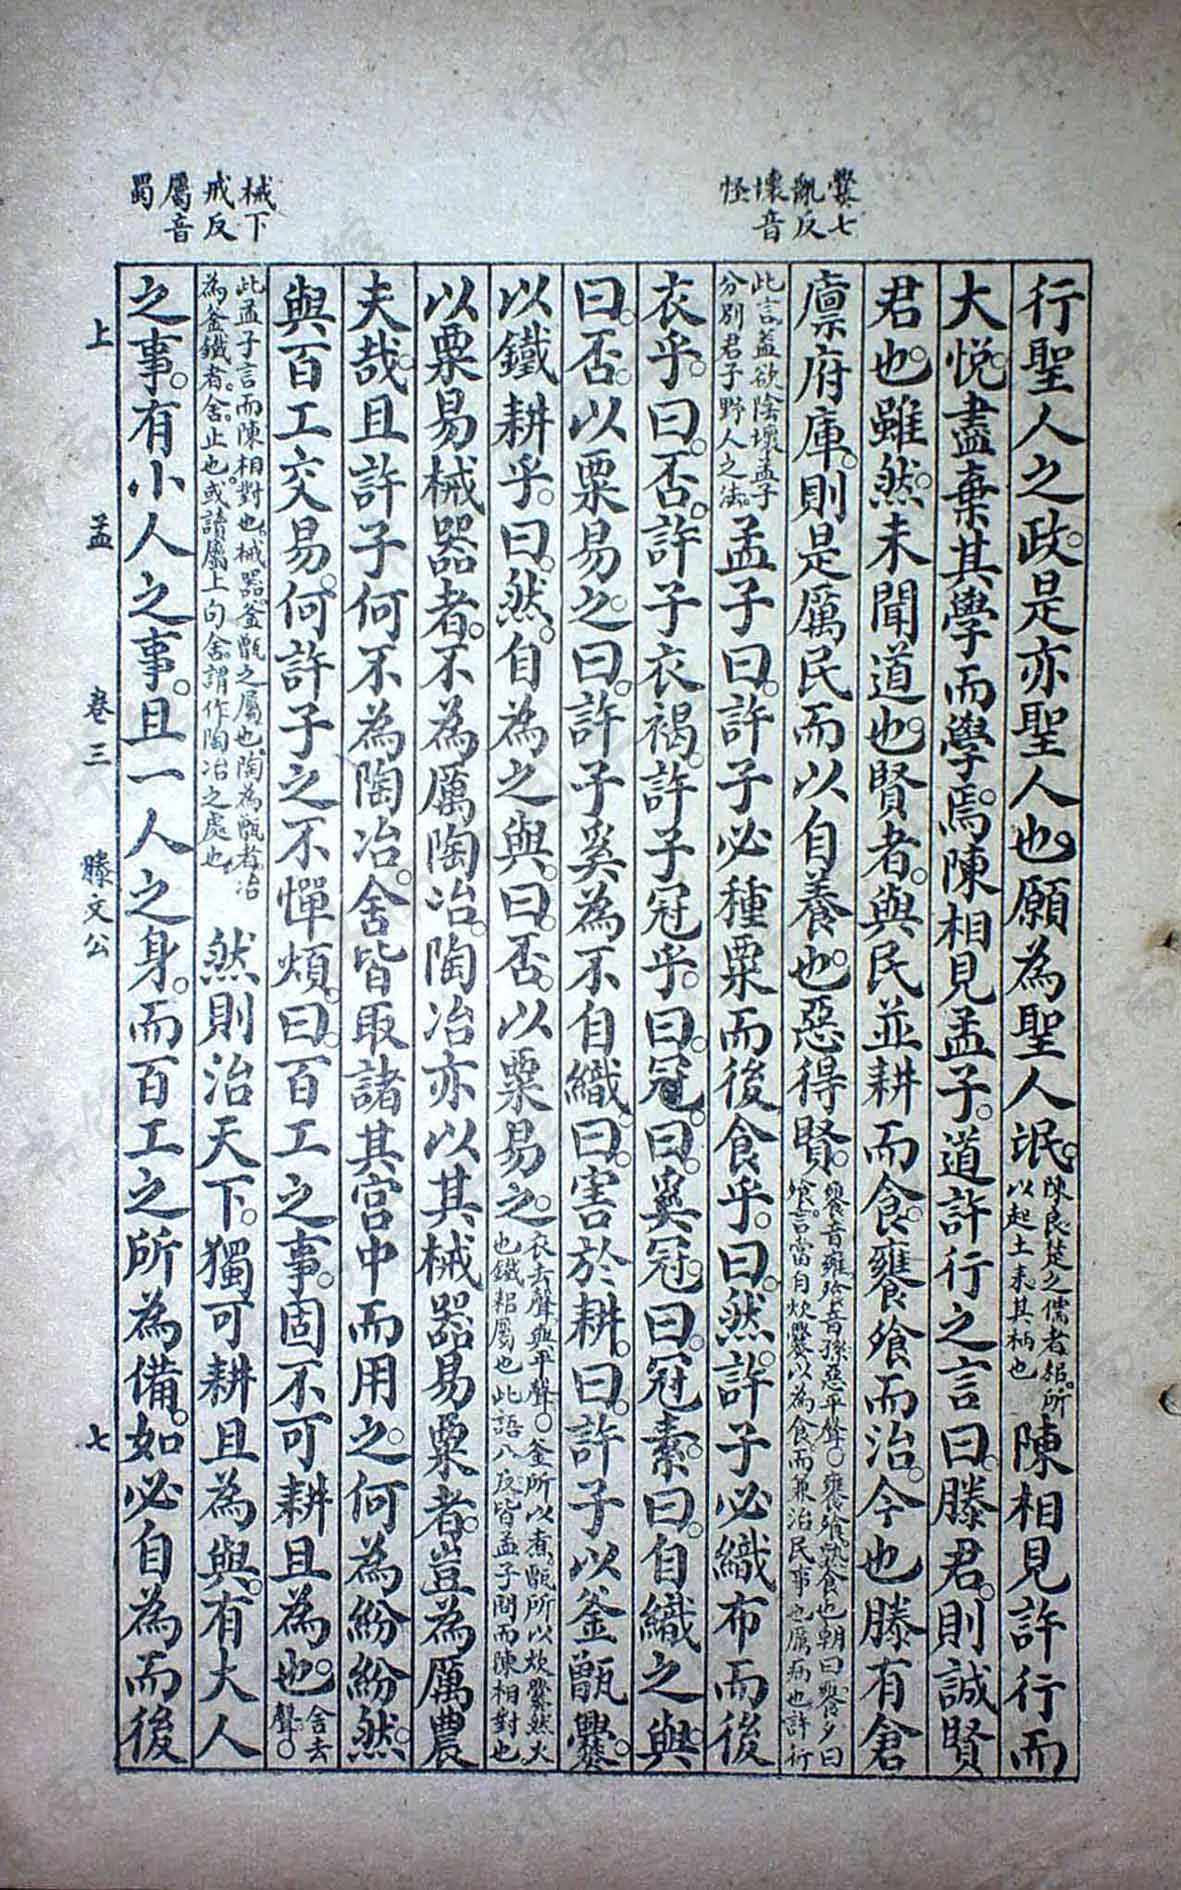 爨七
亂反
壞音
怪
械下
戒反
屬音
蜀
行聖人之政。是亦聖人也。願為聖人氓。陳良楚之儒者。耜。所以起土耒其柄也 陳相見許行而
大悅。盡棄其學而學焉。陳相見孟子。道許行之言曰。滕君。則誠賢
君也。雖然。未聞道也。賢者。與民並耕而食。饔飧而治。今也滕有倉
廩府庫。則是厲民而以自養也。惡得賢。饔音雍飧音孫惡平聲○饔飧。熟食也朝曰饔夕曰飧。言當自炊爨以為食。而兼治民事也厲病也許行
此言蓋欲陰壞孟子分別君子野人之法。孟子曰。許子必種粟而後食乎。曰。然。許子必織布而後
衣乎。曰。否。許子衣褐。許子冠乎。曰。冠。曰。奚冠。曰。冠素。曰。自織之與。
曰。否。以粟易之。曰。許子奚為不自織。曰。害於耕。曰。許子以釜甑爨。
以鐵耕乎。曰。然。自為之與。曰。否。以粟易之。衣去聲與平聲○釜所以煮。甑所以炊爨然火也鐵耜屬也此語八反皆孟子問而陳相對也
以粟易械器者。不為厲陶冶。陶冶亦以其械器易粟者。豈為厲農
夫哉。且許子何不為陶冶。舍皆取諸其宮中而用之。何為紛紛然。
與百工交易。何許子之不憚煩。曰。百工之事。固不可耕且為也。舍去聲。○
此孟子言而陳相對也。械器釜甑之屬也陶為甑者。冶為釜鐵者。舍。止也。或讀屬上句舍。謂作陶冶之處也 然則治天下。獨可耕且為與。有大人
之事。有小人之事。且一人之身。而百工之所為備。如必自為而後
上 孟 卷三 滕文公 七